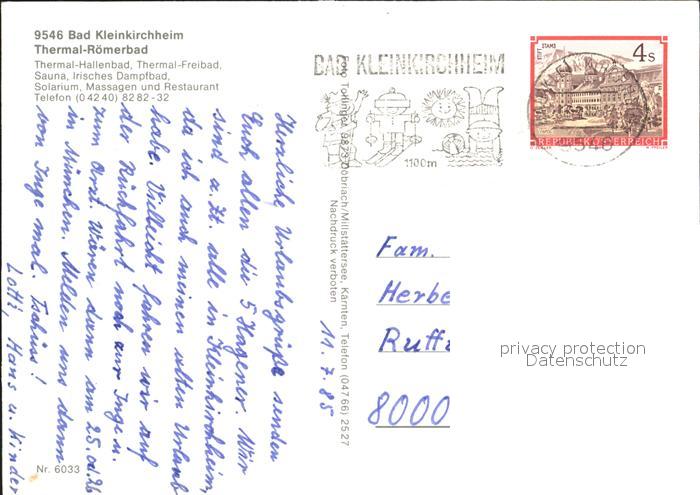 9546 Bad Kleinkirchheim
Thermal-Römerbad
Thermal-Hallenbad, Thermal-Freibad,
Sauna, Irisches Dampfbad,
Solarium, Massagen und Restaurant
Telefon (0 42 40) 82 82 - 32
BAD KLEINKIRCHHEIM
1100m
STIFT STAMS
4s
REPUBLIK ÖSTERREICH
Foto Tollinger, 9873 Döbriach/Millstättersee, Kärnten, Telefon (0 47 66) 25 27
Nachdruck verboten
11.7.85
Herrliche Urlaubsgrüße senden
Euch allen die 5 Hagener. Wir
sind z. Zt. alle in Kleinkirchheim,
da ich auch meinen alten Urlaub
habe. Vielleicht fahren wir auf
der Rückfahrt noch zur Inge u.
zum Arzt. Wären dann am 25. od. 26
in München. Melden uns dann
von Inge mal. Tschüss!
Lotti, Hans u. Kinder
Fam.
Herbe
Ruff
8000
privacy protection
Datenschutz
Nr. 6033